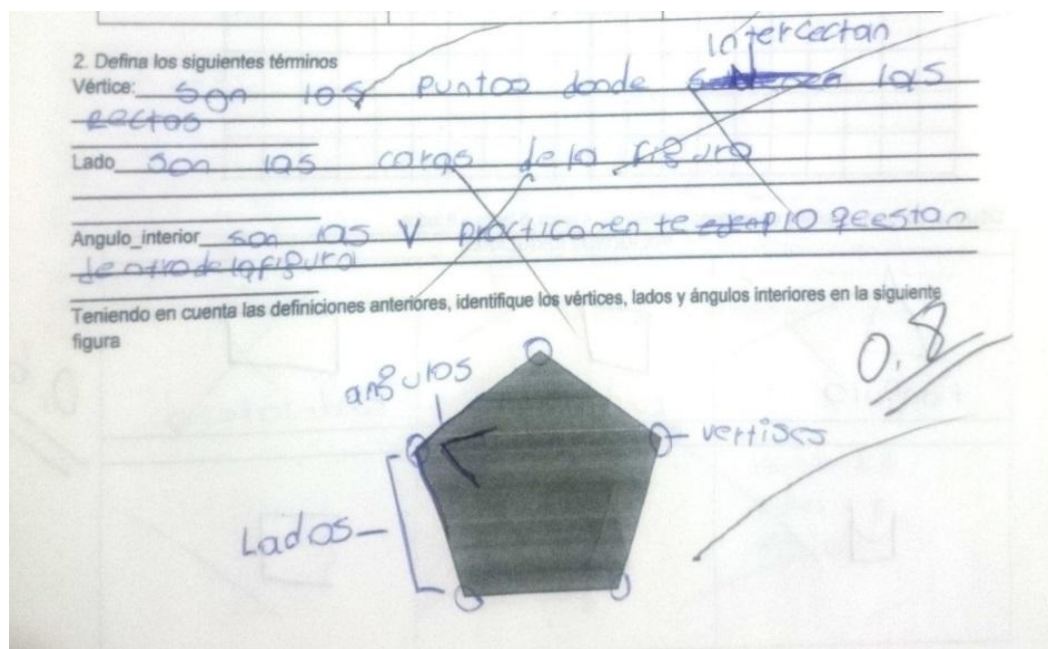 2. Defina los siguientes términos
intercectan
Vértice: son los puntos donde las
rectas
Lado son las caras de la figura
Angulo_interior son las V practicamente lo qe estan
dentro de la figura
Teniendo en cuenta las definiciones anteriores, identifique los vértices, lados y ángulos interiores en la siguiente
figura
0.8
angulos
vertises
Lados